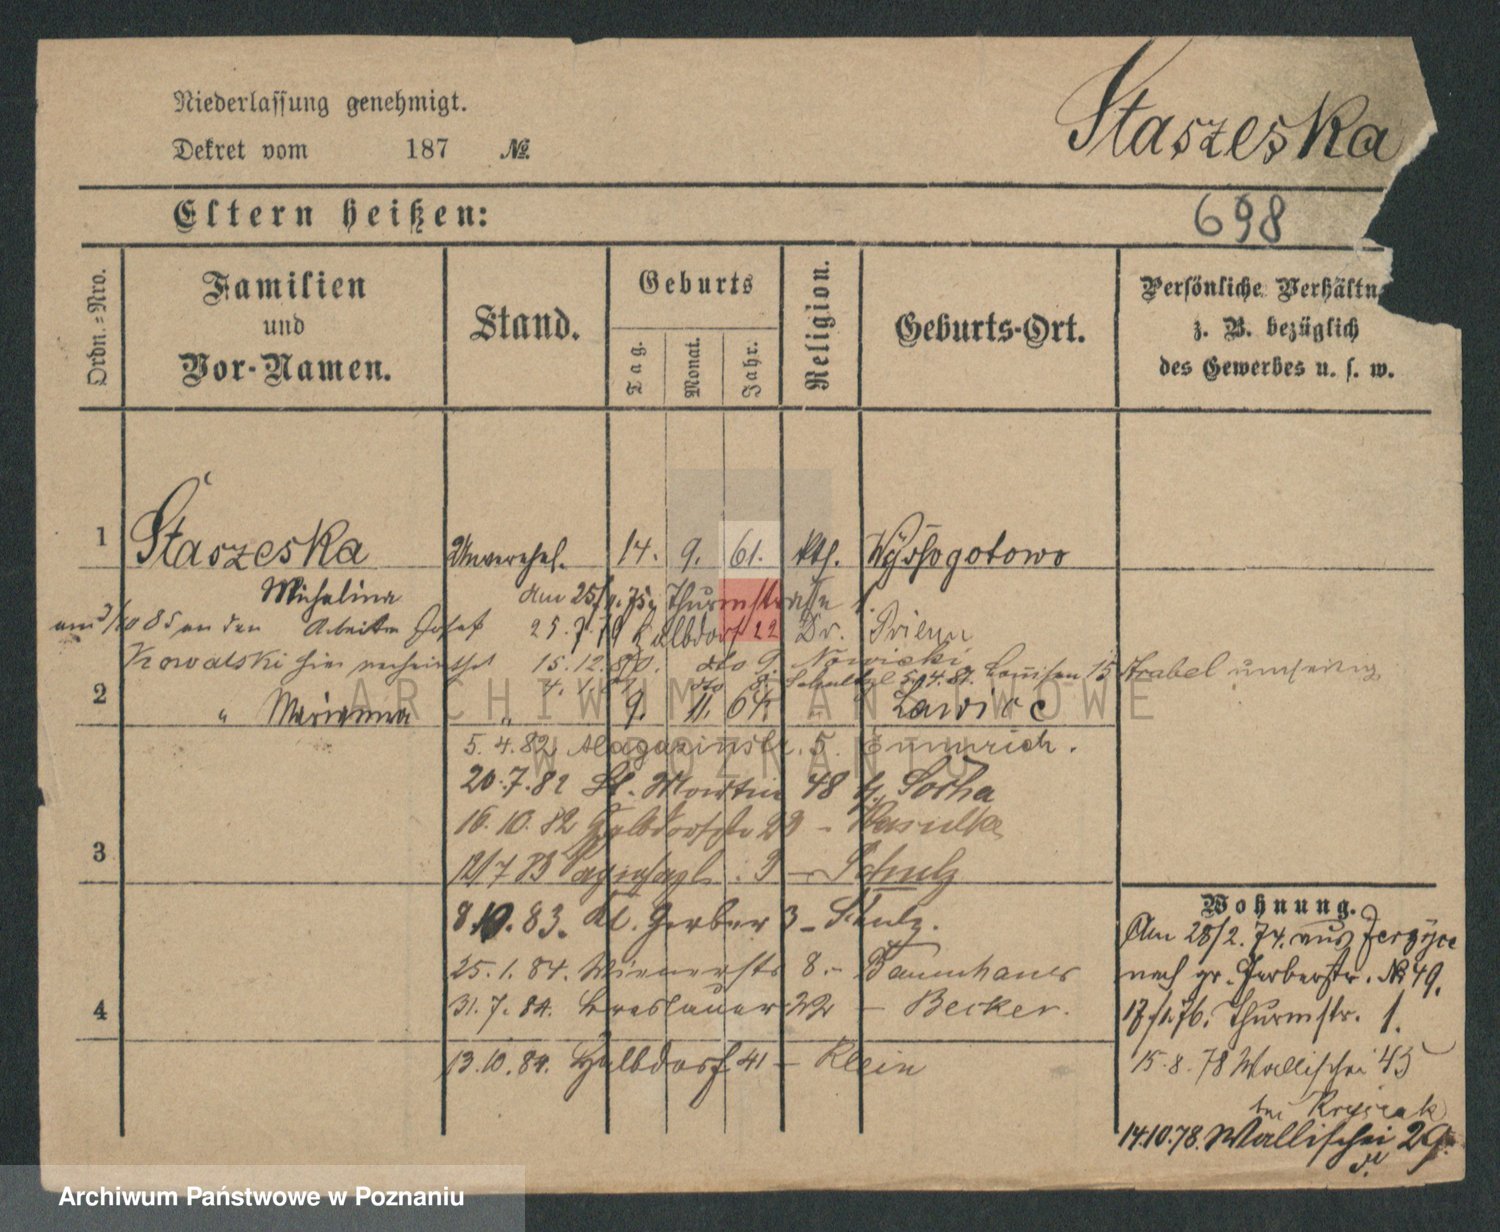 Niederlassung genehmigt.
Dekret vom 187 №
Staszeska
Eltern heißen:
698
Ordn.=Nro.
Familien
und
Vor-Namen.
Stand.
Geburts
Tag.
Monat.
Jahr.
Religion.
Geburts-Ort.
Persönliche Verhältn
z. B. bezüglich
des Gewerbes u. s. w.
1 Staszeska Unverehel. 14. 9. 61. kth. Wyssogotowo
Michalina am 25/ 75. Thurmstraße 1.
85 an den Arbeiter Josef 25.7.79 Halbdorf 22 Dr.
Kowalski hier verheirathet 15.12.80. dto 9. Nowicki
dto 8. 5.4.81. Louisen 15 Strabel umseitig
2 " Marianna " 9. 11. 64.
5.4.82 Magazinstr. 5.
20.7.82 St. Martin 48 Socha
16.10.82 Halbdorfstr 29 -
3 12/7 83 9 - Schulz
8.10.83. Kl. Gerber 3 - Schulz.
25.1.84. Wienerstr 8. -
4 31.7.84. Breslauer 22 - Becker.
13.10.84. Halbdorf 41 - Klein
Wohnung.
Am 28/2. 74. aus Jerzyce
nach gr. Gerberstr. № 49.
17/1.76. Thurmstr. 1.
15.8.78 Wallischei 45
bei Krysiak
14.10.78. Wallischei 29.
ARCHIWUM PAŃSTWOWE
W POZNANIU
Archiwum Państwowe w Poznaniu